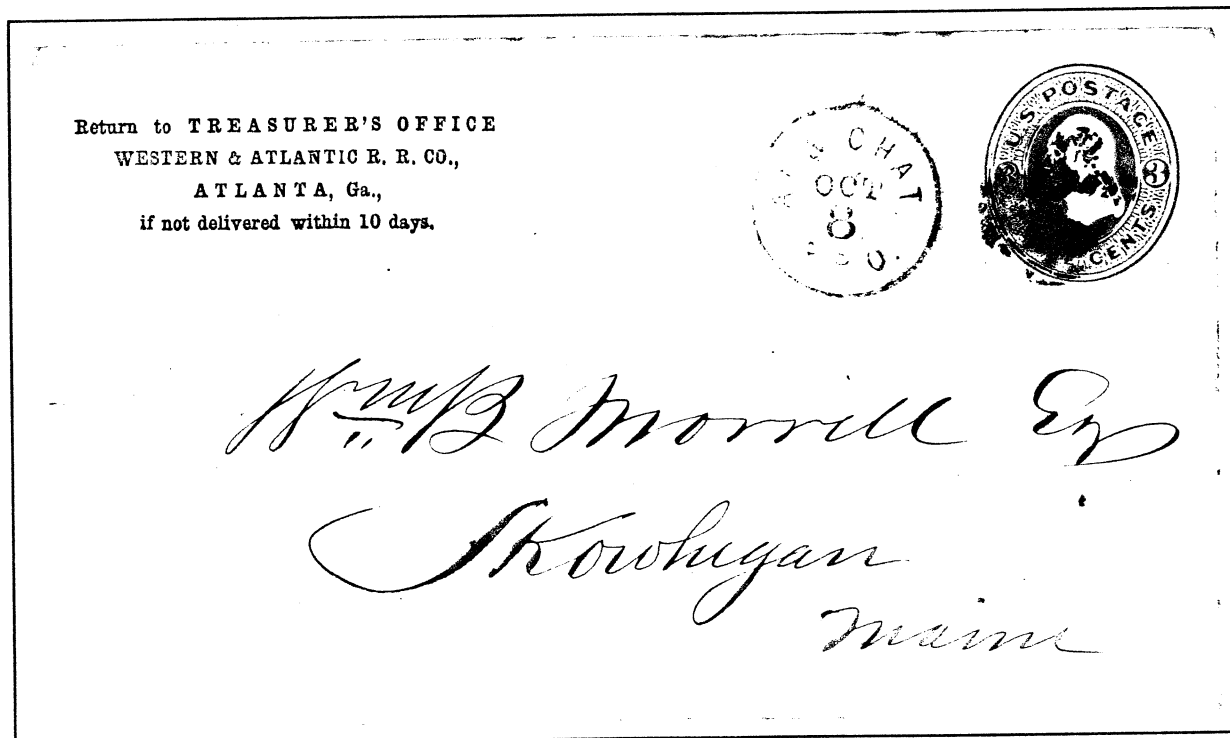 Return to TREASURER'S OFFICE
WESTERN & ATLANTIC R. R. CO.,
ATLANTA, Ga.,
if not delivered within 10 days.
CHAT
OCT
8
U.S. POSTAGE
3
CENTS
Wm B Morrill Esq
Skowhegan
Maine